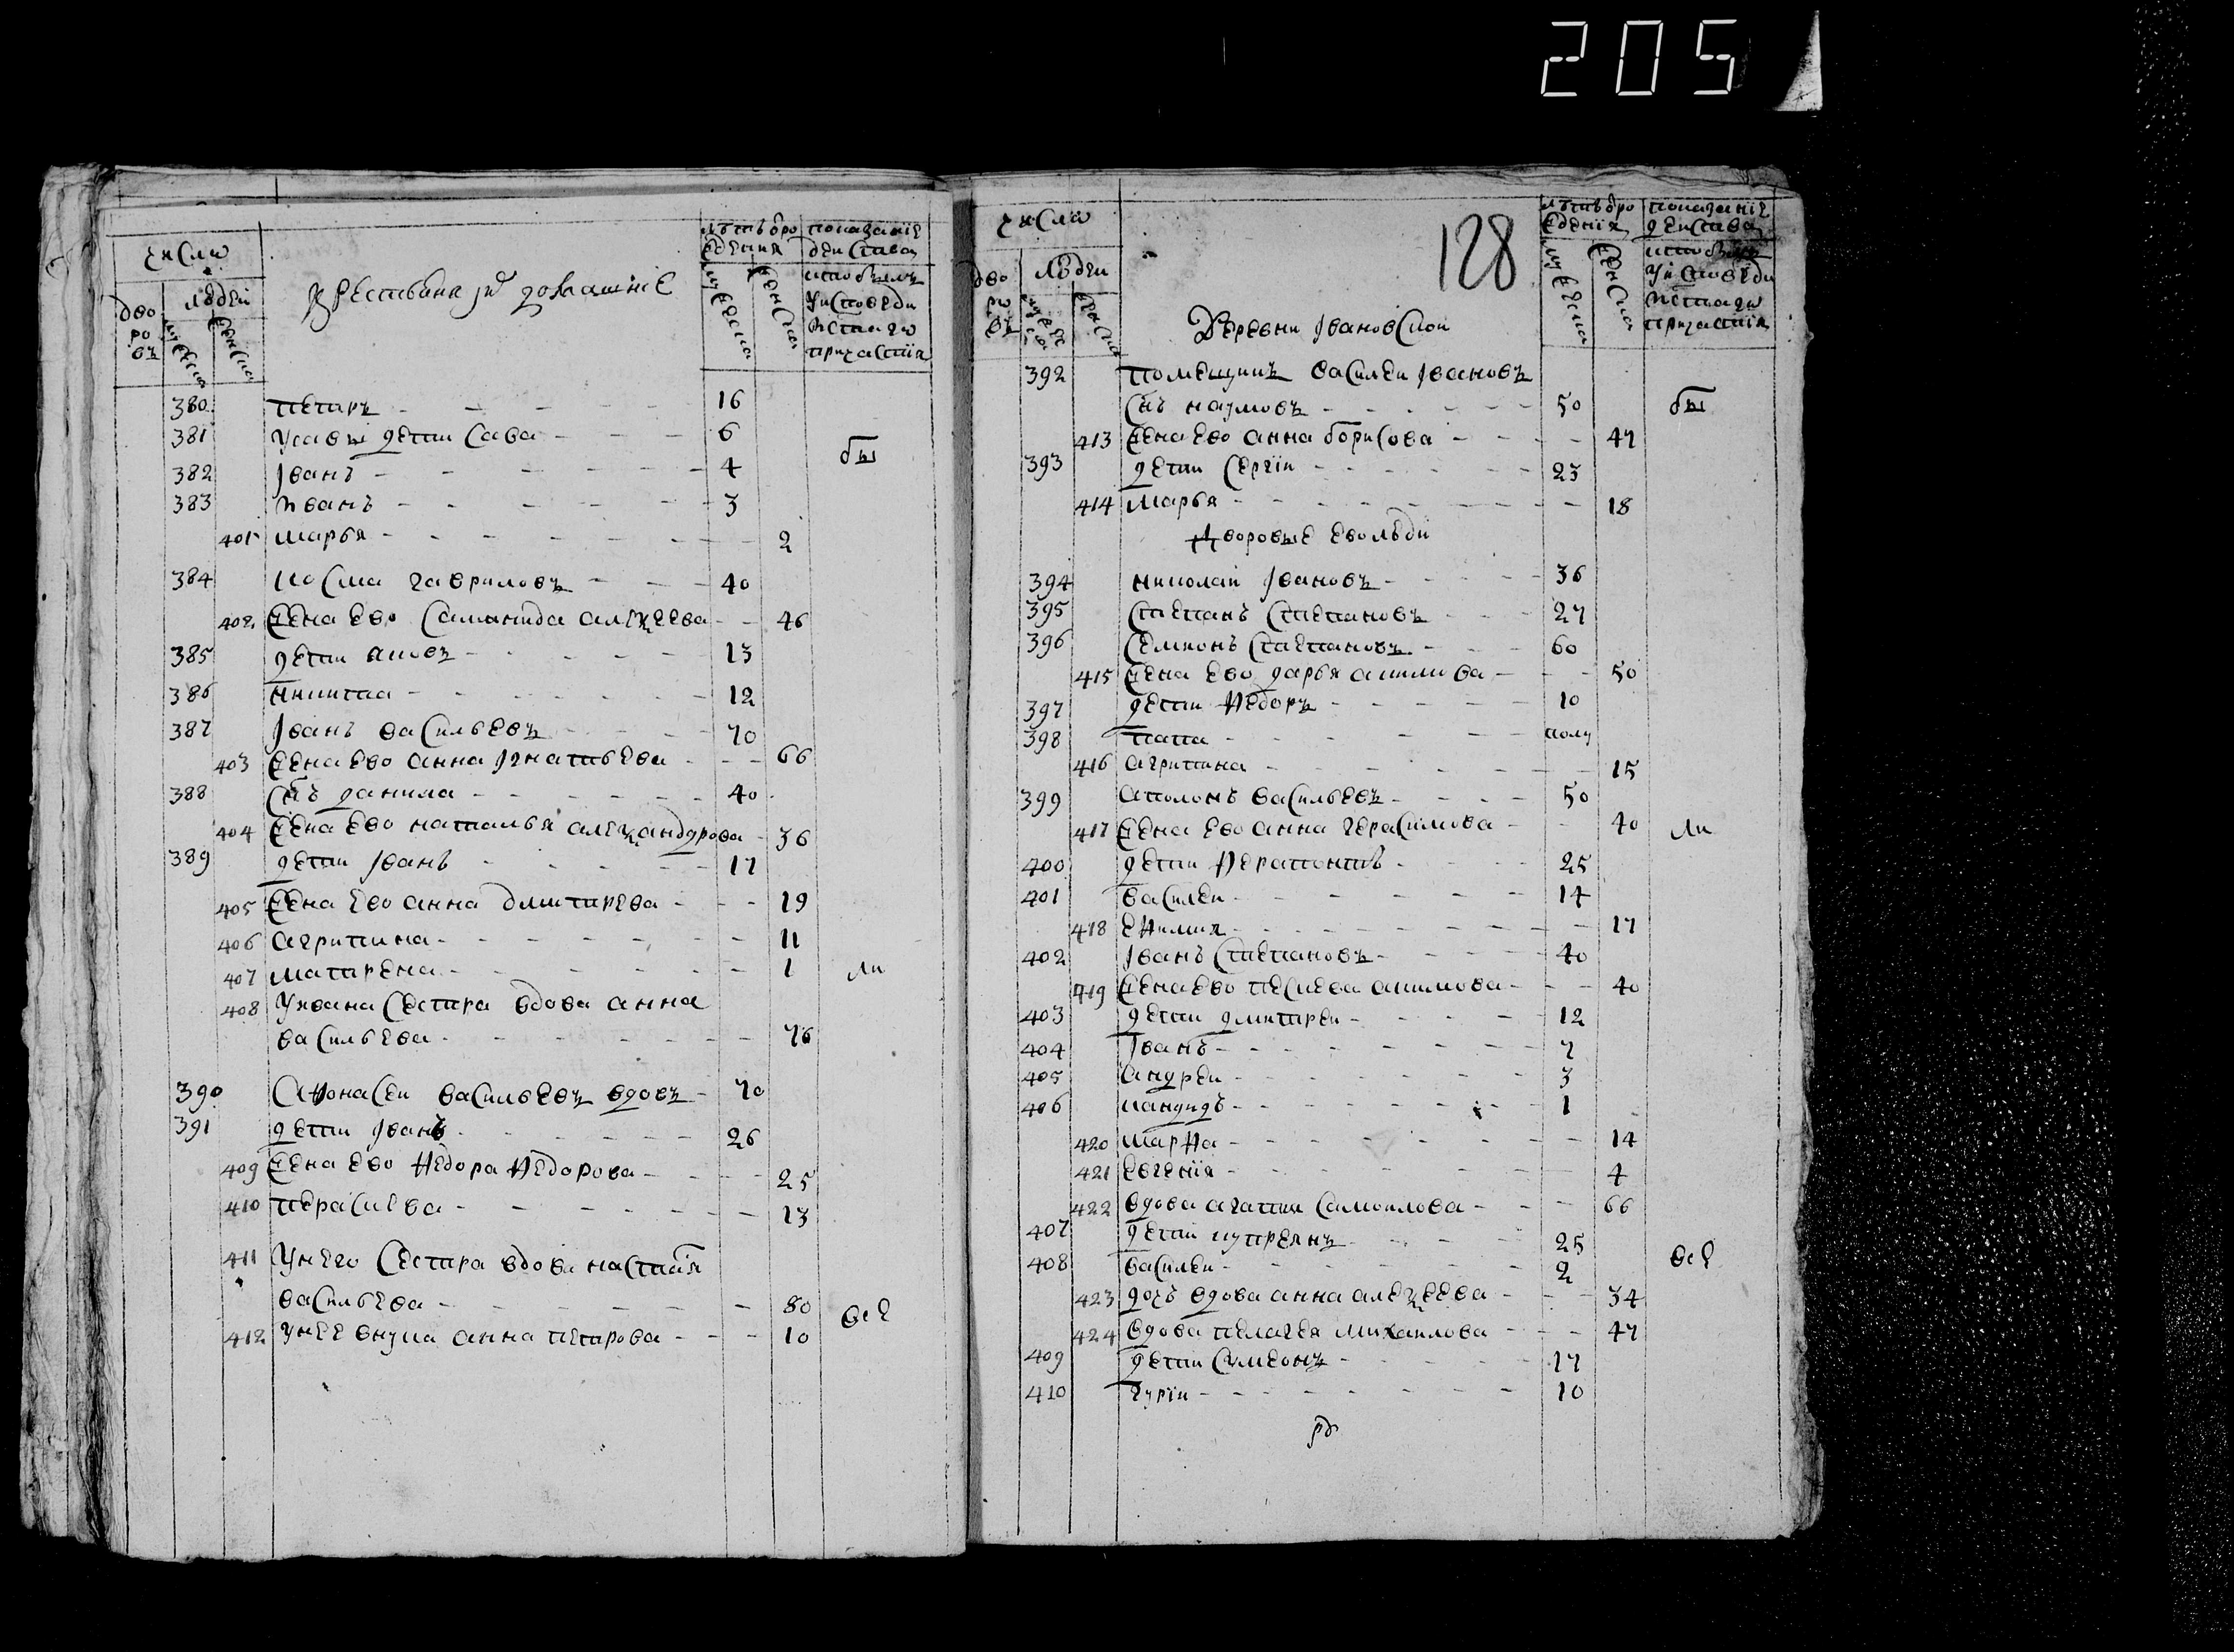 205
числа
людеи
дво
ро
въ
мужеска
женска
крестьяна и домашние
лѣтъ отро
ждения
мужеска
женска
показание
деиства
кто былъ
у исповеди
и ктаго
причастия
380 петръ 16
381 у савы дети сава 6 бы
382 Іванъ 4
383 иванъ 3
401 марья 2
384 косма гавриловъ 40
402 жена ево саманида алеѯеева 46
385 дети аковъ 13
386 никита 12
387 Іванъ васильевъ 70
403 жена ево анна игнатьева 66
388 снъ данила 40
404 жена ево наталья алеѯандрова 36
389 дети Іванъ 17
405 жена ево анна дмитрева 19
406 агрипина 11
407 матрена 1 ли
408 у ивана сестра вдова анна
васильева 76
390 аѳонасеи васильевъ вдовъ 70
391 дети Іванъ 26
409 жена ево ѳедора ѳедорова 25
410 перасковья 13
411 у него сестра вдова настасия
васильева 80 все
412 у нее внука анна петрова 10
числа
дво
ро
въ
людеи
мужеска
женска
128
Деревни Івановскои
лѣтъ отро
ждения
мужеска
женска
показание
деиства
кто былъ
у исповеди
и ктаго
причастия
392 помещикъ василеи Івановъ
снъ наумовъ 50 бы
413 жена ево анна борисова 47
393 дети сергіи 23
414 марья 18
Дворовые ево люди
394 николаи Івановъ 36
395 степанъ степановъ 27
396 семионъ степановъ 60
415 жена ево дарья акимова 50
397 дети ѳедоръ 10
398 папа полу
416 агрипина 15
399 аполонъ васильевъ 50
417 жена ево анна герасимова 40 ли
400 дети ѳерапонтъ 25
401 василеи 14
418 еѳимия 17
402 Іванъ степановъ 40
419 жена ево пескева акимова 40
403 дети дмитреи 12
404 Іванъ 7
405 андреи 3
406 кандидъ 1
420 марѳа 14
421 евгения 4
422 вдова агапия самоилова 66
407 дети купреянъ 25
408 василеи 2 все
423 дочь вдова анна алеѯеева 34
424 вдова пелагея михаилова 47
409 дети симеонъ 17
410 гуріи 10